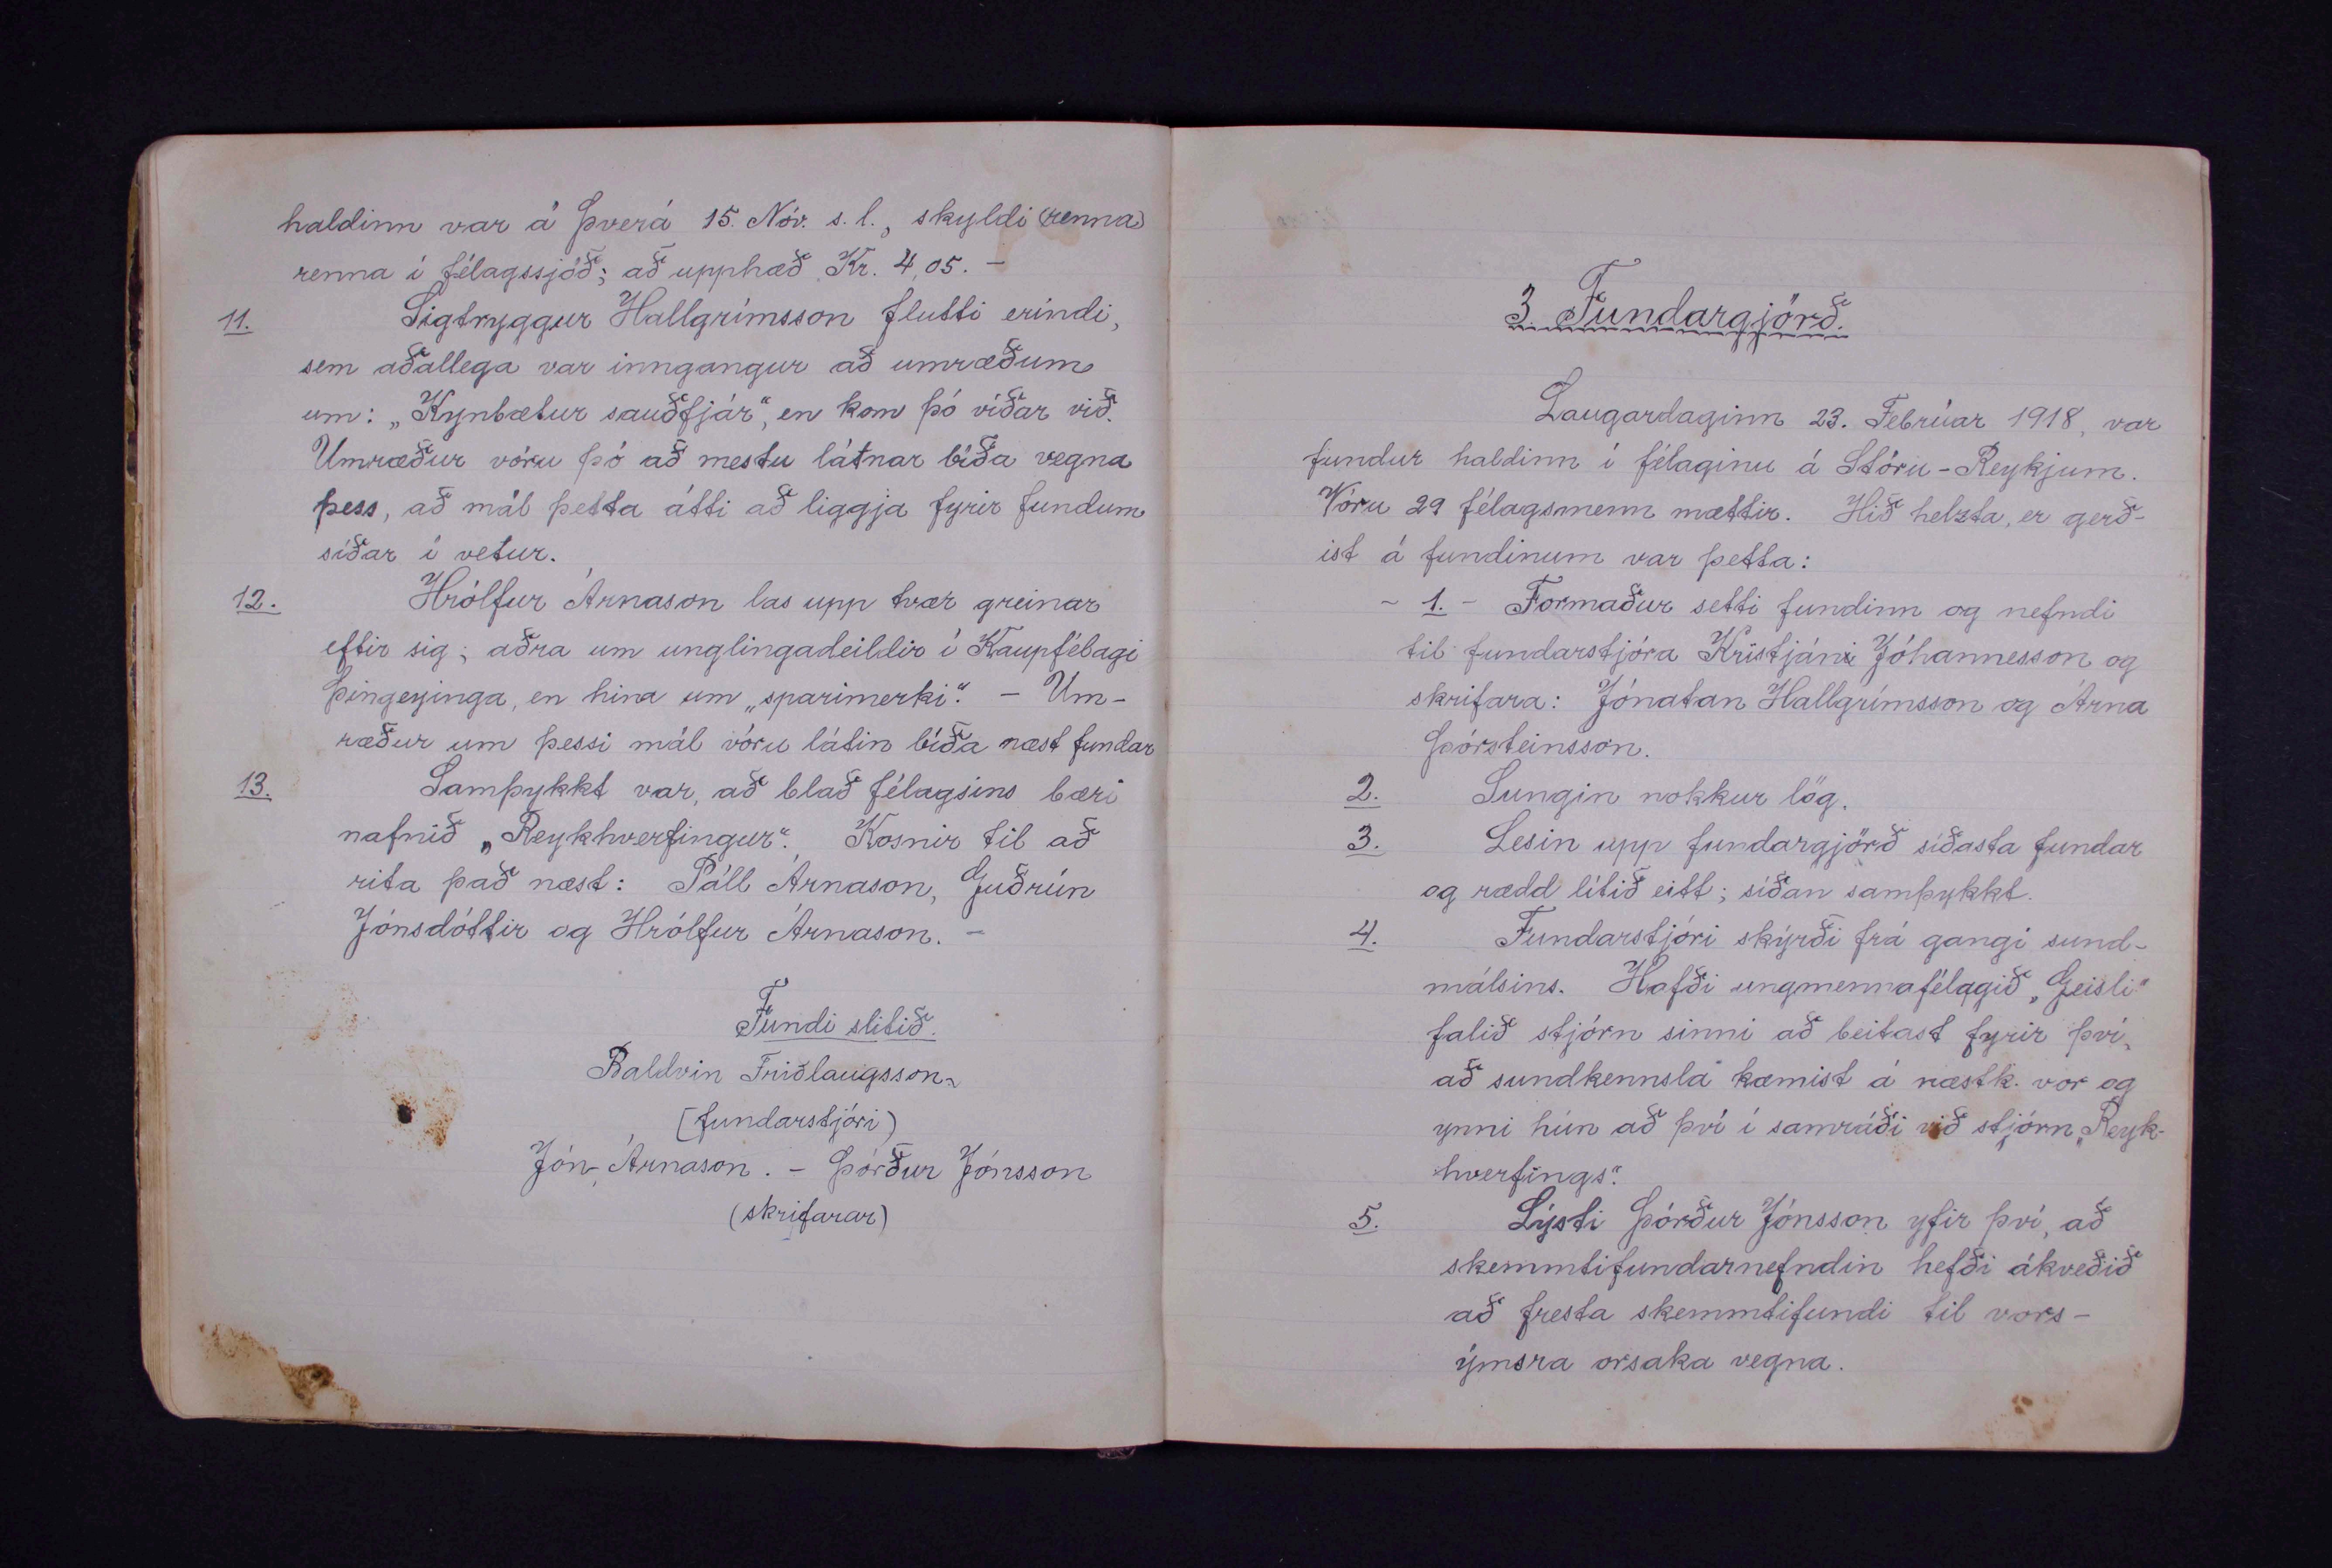 haldinn var á Þverá 15. Nóv. s.l., skyldi (renna)
renna í félagssjóð; að upphæð Kr. 4,05. –
11. Sigtryggur Hallgrímsson flutti erindi,
sem aðallega var inngangur að umræðum
um: „Kynbætur sauðfjár“, en kom þó víðar við.
Umræður vóru þó að mestu látnar bíða vegna
þess, að mál þetta átti að liggja fyrir fundum
síðar í vetur.
12. Hrólfur Árnason las upp tvær greinar
eftir sig; aðra um unglingadeildir í Kaupfélagi
Þingeyinga, en hina um „sparimerki“. – Um-
ræður um þessi mál vóru látin bíða næst fundar
13. Samþykkt var, að blað félagsins bæri
nafnið „Reykhverfingur“. Kosnir til að
rita það næst: Páll Árnason, Guðrún
Jónsdóttir og Hrólfur Árnason. –
Fundi slitið.
Baldvin Friðlaugsson
(fundarstjóri)
Jón Árnason. – Þórður Jónsson
(skrifarar)
3. Fundargjörð.
Laugardaginn 23. Febrúar 1918, var
fundur haldinn í félaginu á Stóru-Reykjum.
Vóru 29 félagsmenn mættir. Hið helzta, er gerð-
ist á fundinum var þetta:
- 1. - Formaður setti fundinn og nefndi
til fundarstjóra Kristján Jóhannesson og
skrifara: Jónatan Hallgrímsson og Árna
Þórsteinsson.
2. Sungin nokkur lög.
3. Lesin upp fundargjörð síðasta fundar
og rædd lítið eitt; síðan samþykkt.
4. Fundarstjóri skýrði frá gangi sund-
málsins. Hafði ungmennafélagið „Geisli“
falið stjórn sinni að beitast fyrir því,
að sundkennsla kæmist á næstk. vor og
ynni hún að því í samráði við stjórn „Reyk-
hverfings“.
5. Lýsti Þórður Jónsson yfir því, að
skemmtifundarnefndin hefði ákveðið
að fresta skemmtifundi til vors –
ýmsra orsaka vegna.